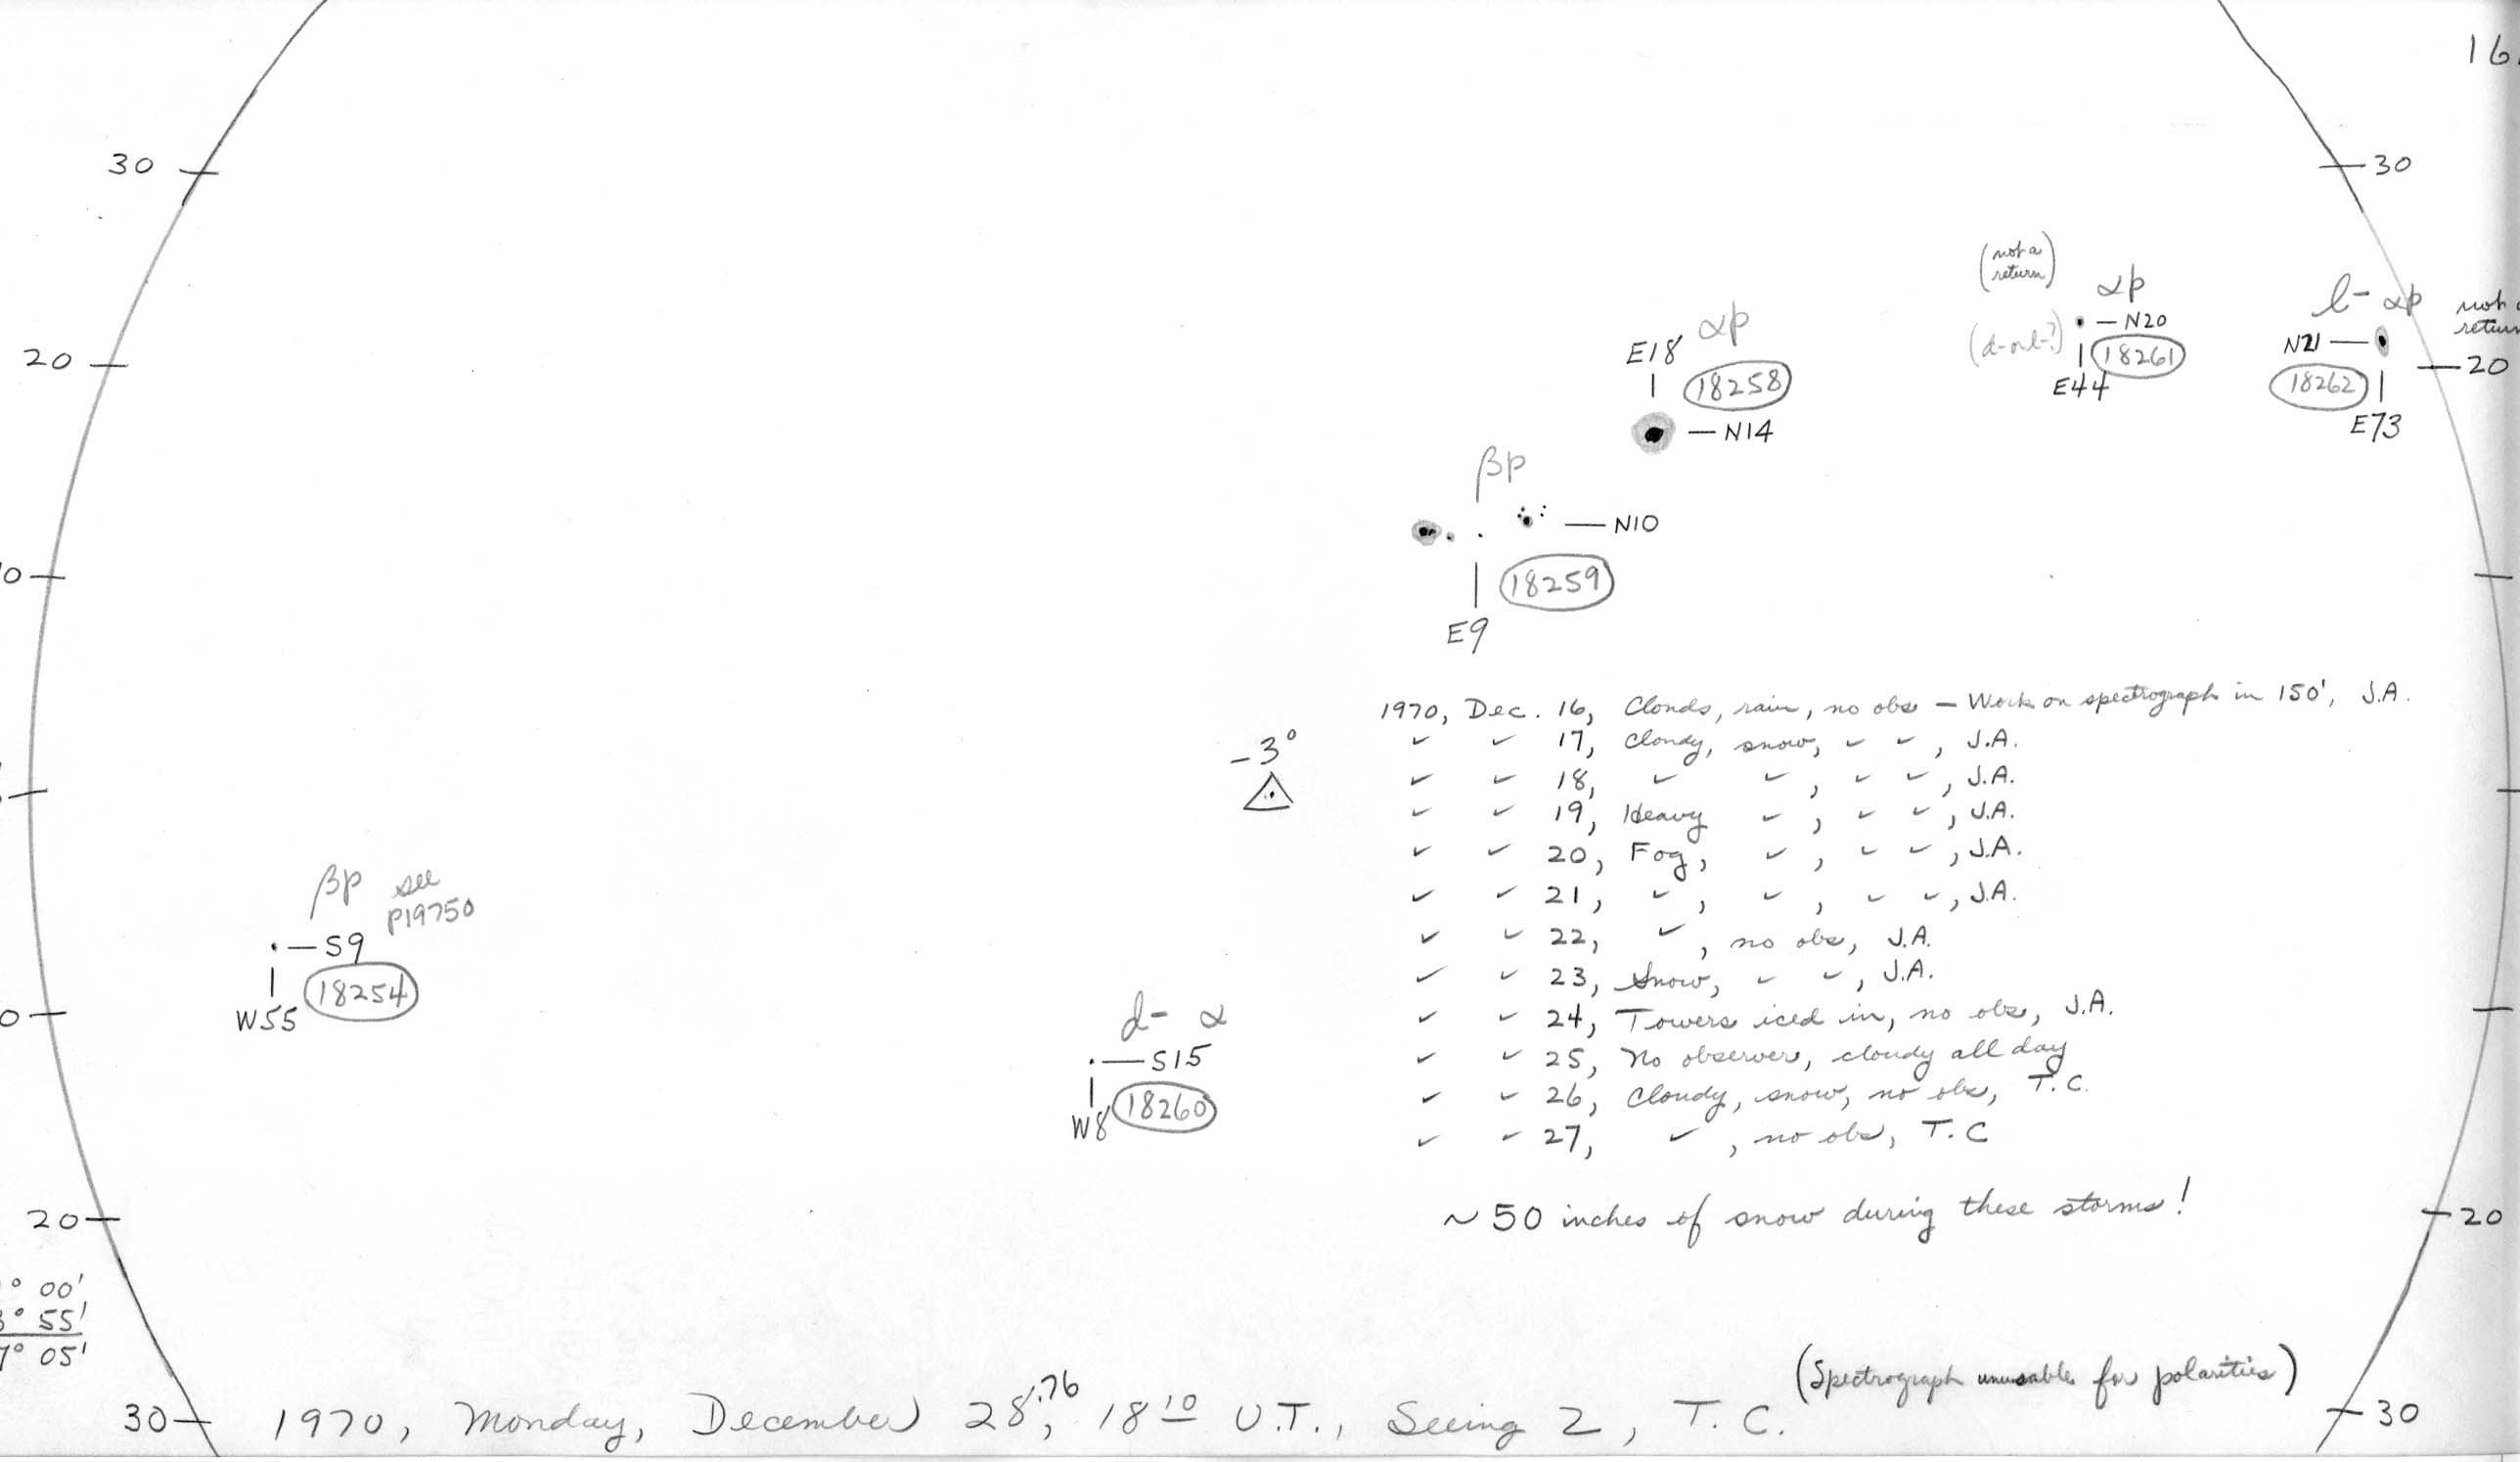 16.
30
30
(not a
return)
αp
l- αp
not
return
N20
(d- or l-?)
18261
E44
N21
18262
E73
20
20
αp
E18
18258
N14
βp
N10
18259
E9
0
1970, Dec. 16, Clouds, rain, no obs — Work on spectrograph in 150', J.A.
✓ ✓ 17, Cloudy, snow, ✓ ✓, J.A.
✓ ✓ 18, ✓ ✓, ✓ ✓, J.A.
✓ ✓ 19, Heavy ✓, ✓ ✓, J.A.
✓ ✓ 20, Fog, ✓, ✓ ✓, J.A.
✓ ✓ 21, ✓, ✓, ✓ ✓, J.A.
✓ ✓ 22, ✓, no obs, J.A.
✓ ✓ 23, Snow, ✓ ✓, J.A.
✓ ✓ 24, Towers iced in, no obs, J.A.
✓ ✓ 25, No observer, cloudy all day
✓ ✓ 26, Cloudy, snow, no obs, T.C.
✓ ✓ 27, ✓, no obs, T.C
~50 inches of snow during these storms!
-3°
βp see
p19750
S9
18254
W55
0
d- α
S15
18260
W8
20
20
° 00'
° 55'
7° 05'
(Spectrograph unusable for polarities)
30
1970, Monday, December 28.76, 18 10 U.T., Seeing 2, T.C.
30